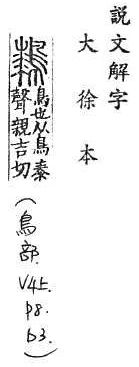 說文解字
大徐本
鳥也从鳥桼
聲親吉切
(鳥部. V4上. p8. b3.)